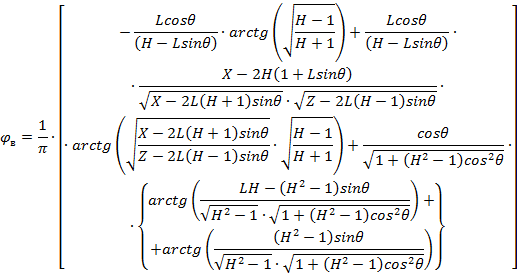 $-\frac{Lcosθ}{(H-Lsinθ)} \cdot arctg\left(\sqrt{\frac{H-1}{H+1}}\right)+\frac{Lcosθ}{(H-Lsinθ)} \cdot$
$\cdot \frac{X-2H(1+Lsinθ)}{\sqrt{X-2L(H+1)sinθ} \cdot \sqrt{Z-2L(H-1)sinθ}} \cdot$
$φ_{в}=\frac{1}{π} \cdot \left[ \cdot arctg\left(\sqrt{\frac{X-2L(H+1)sinθ}{Z-2L(H-1)sinθ}} \cdot \sqrt{\frac{H-1}{H+1}}\right)+\frac{cosθ}{\sqrt{1+(H^2-1)cos^2θ}} \cdot \right] \cdot$
$\cdot \left\{ arctg\left(\frac{LH-(H^2-1)sinθ}{\sqrt{H^2-1} \cdot \sqrt{1+(H^2-1)cos^2θ}}\right)+ \right.$
$\left. +arctg\left(\frac{(H^2-1)sinθ}{\sqrt{H^2-1} \cdot \sqrt{1+(H^2-1)cos^2θ}}\right) \right\}$